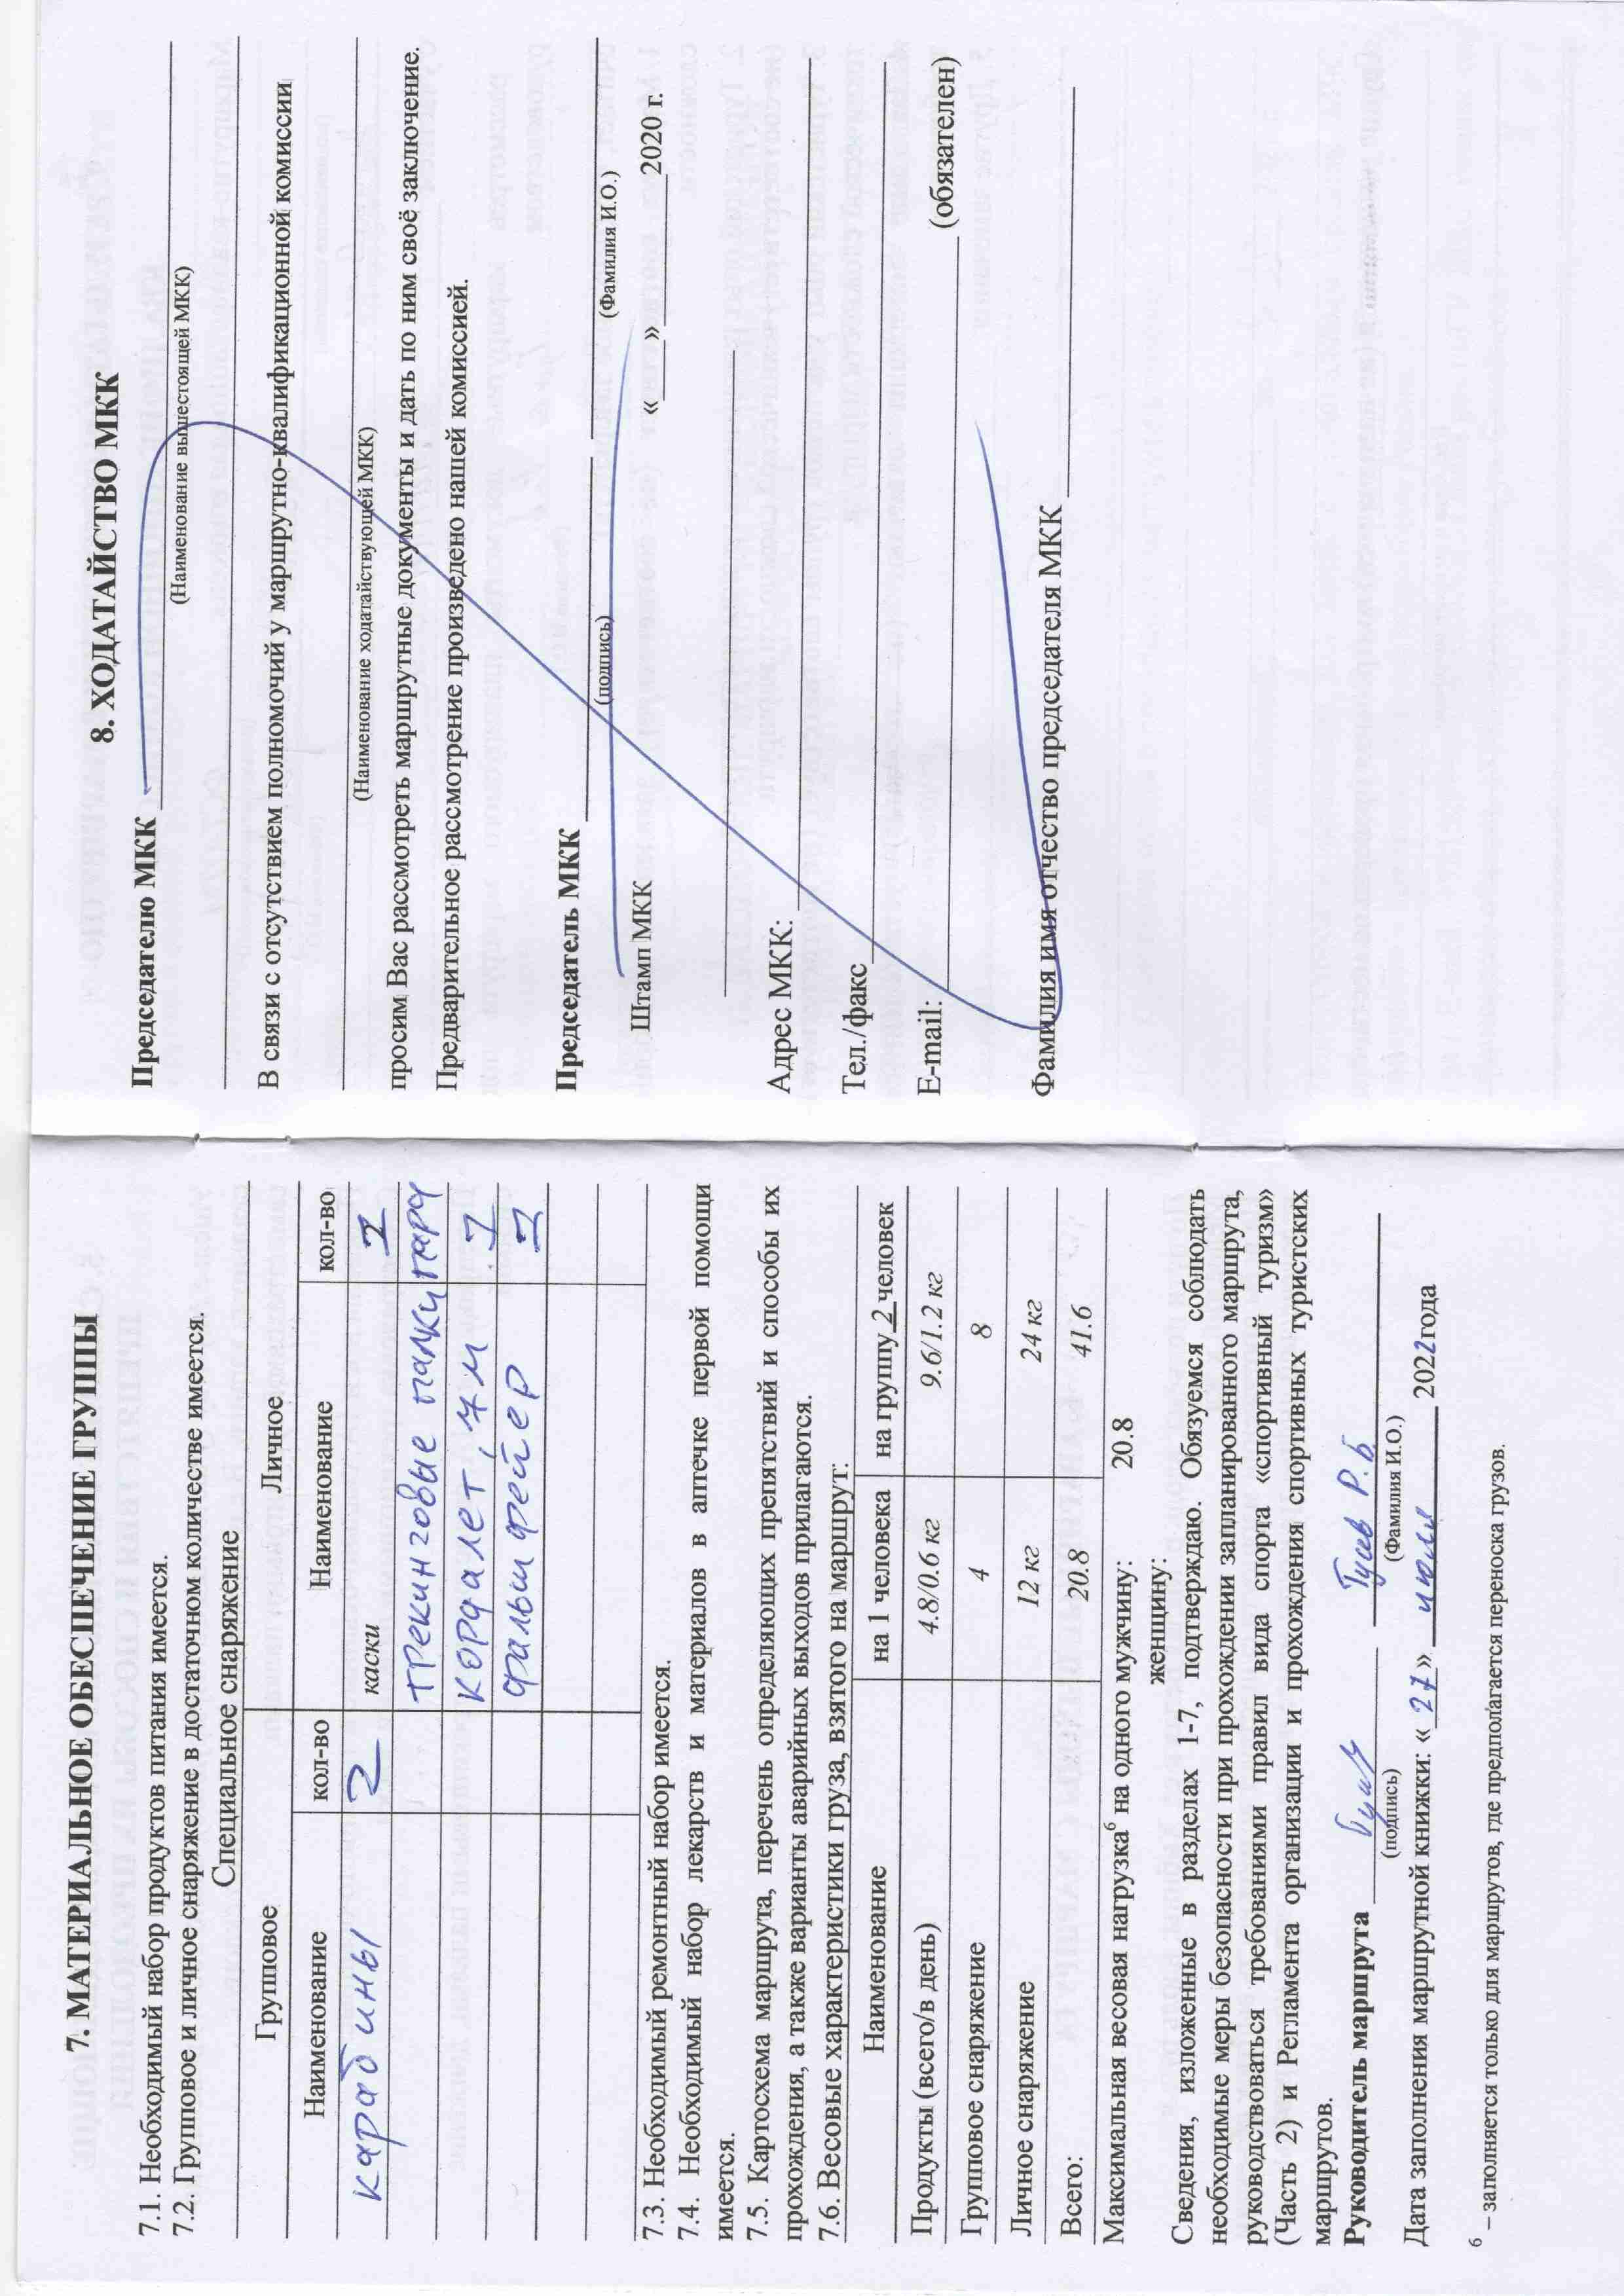 7. МАТЕРИАЛЬНОЕ ОБЕСПЕЧЕНИЕ ГРУППЫ
7.1. Необходимый набор продуктов питания имеется.
7.2. Групповое и личное снаряжение в достаточном количестве имеется.
Специальное снаряжение
Групповое Личное
Наименование кол-во Наименование кол-во
карабины 2 каски 1
трекинговые палки пара
кордалет, 7м 1
фальшфейер 1
7.3. Необходимый ремонтный набор имеется.
7.4. Необходимый набор лекарств и материалов в аптечке первой помощи
имеется.
7.5. Картосхема маршрута, перечень определяющих препятствий и способы их
прохождения, а также варианты аварийных выходов прилагаются.
7.6. Весовые характеристики груза, взятого на маршрут:
Наименование на 1 человека на группу 2 человек
Продукты (всего/в день) 4.8/0.6 кг 9.6/1.2 кг
Групповое снаряжение 4 8
Личное снаряжение 12 кг 24 кг
Всего: 20.8 41.6
Максимальная весовая нагрузка⁶ на одного мужчину: 20.8
женщину:
Сведения, изложенные в разделах 1-7, подтверждаю. Обязуемся соблюдать
необходимые меры безопасности при прохождении запланированного маршрута,
руководствоваться требованиями правил вида спорта «спортивный туризм»
(Часть 2) и Регламента организации и прохождения спортивных туристских
маршрутов.
Руководитель маршрута Р.Б.
(подпись) (Фамилия И.О.)
Дата заполнения маршрутной книжки: «27» июля 2022года
⁶ – заполняется только для маршрутов, где предполагается переноска грузов.
8. ХОДАТАЙСТВО МКК
Председателю МКК
(Наименование вышестоящей МКК)
В связи с отсутствием полномочий у маршрутно-квалификационной комиссии
(Наименование ходатайствующей МКК)
просим Вас рассмотреть маршрутные документы и дать по ним своё заключение.
Предварительное рассмотрение произведено нашей комиссией.
Председатель МКК
(подпись) (Фамилия И.О.)
Штамп МКК «___» ________ 2020 г.
Адрес МКК:
Тел./факс
E-mail: (обязателен)
Фамилия имя отчество председателя МКК